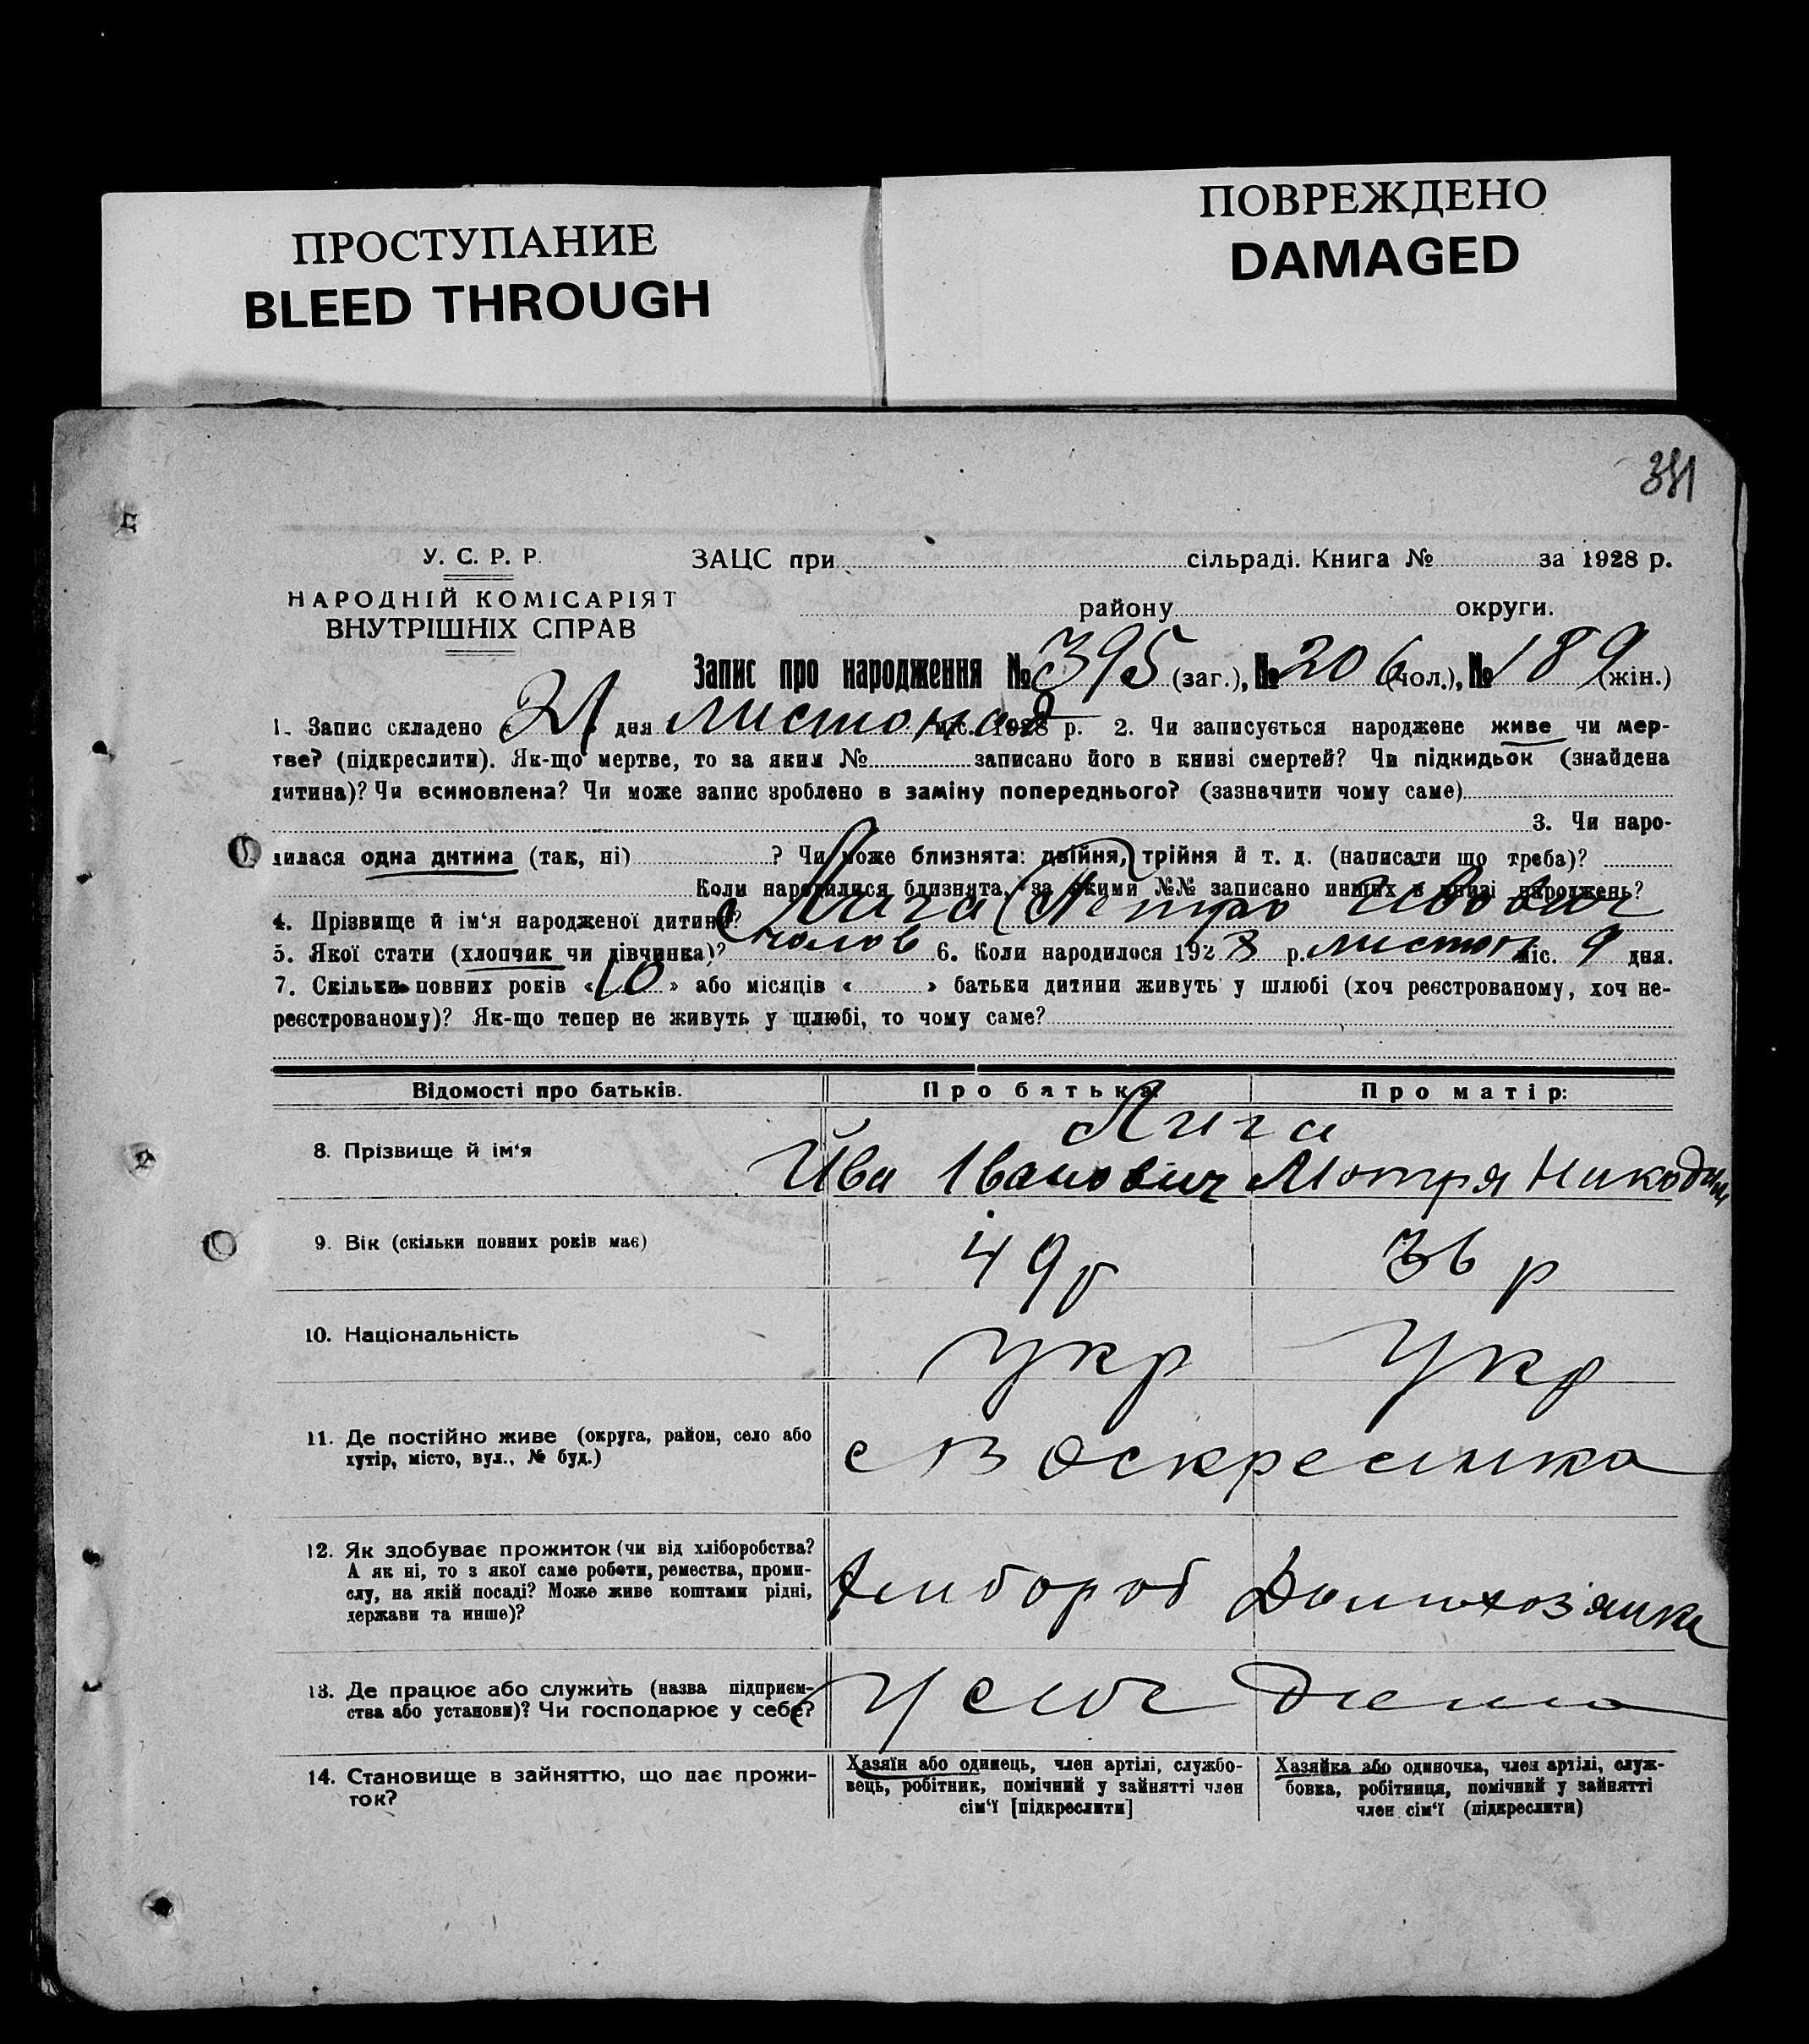 ПРОСТУПАНИЕ
BLEED THROUGH
ПОВРЕЖДЕНО
DAMAGED
У. С. Р. Р.
НАРОДНІЙ КОМІСАРІЯТ
ВНУТРІШНІХ СПРАВ
ЗАЦС при сільраді. Книга № за 1928 р.
району округи.
Запис про народження № 395 (заг.), № 206 (чол.), № 189 (жін.)
1. Запис складено « 21 » дня листопад міс. 1928 р. 2. Чи записується народжене живе чи мер-
тве? (підкреслити). Як-що мертве, то за яким № записано його в книзі смертей? Чи підкидьок (знайдена
дитина)? Чи всиновлена? Чи може запис зроблено в заміну попереднього? (зазначити чому саме)
3. Чи наро-
дилася одна дитина (так, ні) ? Чи може близнята: двійня, трійня й т. д. (написати що треба)?
Коли народилися близнята, за якими №№ записано инших в книзі народжень?
4. Прізвище й ім‘я народженої дитини? Петро
5. Якої стати (хлопчик чи дівчинка)? чолов 6. Коли народилося 1928 р. листоп міс. 9 дня.
7. Скільки повних років « 10 » або місяців « » батьки дитини живуть у шлюбі (хоч реєстрованому, хоч не-
реєстрованому)? Як-що тепер не живуть у шлюбі, то чому саме?
Відомості про батьків. Про батька: Про матір:
8. Прізвище й ім‘я
Іванович Мотря Никодим
9. Вік (скільки повних років має) 49 р 36 р
10. Національність Укр Укр
11. Де постійно живе (округа, район, село або
хутір, місто, вул., № буд.)
с Воскресинка
12. Як здобуває прожиток (чи від хліборобства?
А як ні, то з якої саме роботи, ремества, проми-
слу, на якій посаді? Може живе коштами рідні,
держави та инше)?
Хлибороб Домохозяика
13. Де працює або служить (назва підприєм-
ства або установи)? Чи господарює у себе?
У себе дома
14. Становище в зайняттю, що дає прожи-
ток?
Хазяїн або одинець, член артілі, службо-
вець, робітник, помічний у зайнятті член
сім‘ї [підкреслити]
Хазяйка або одиночка, член артілі, служ-
бовка, робітниця, помічний у зайнятті
член сім‘ї (підкреслити)